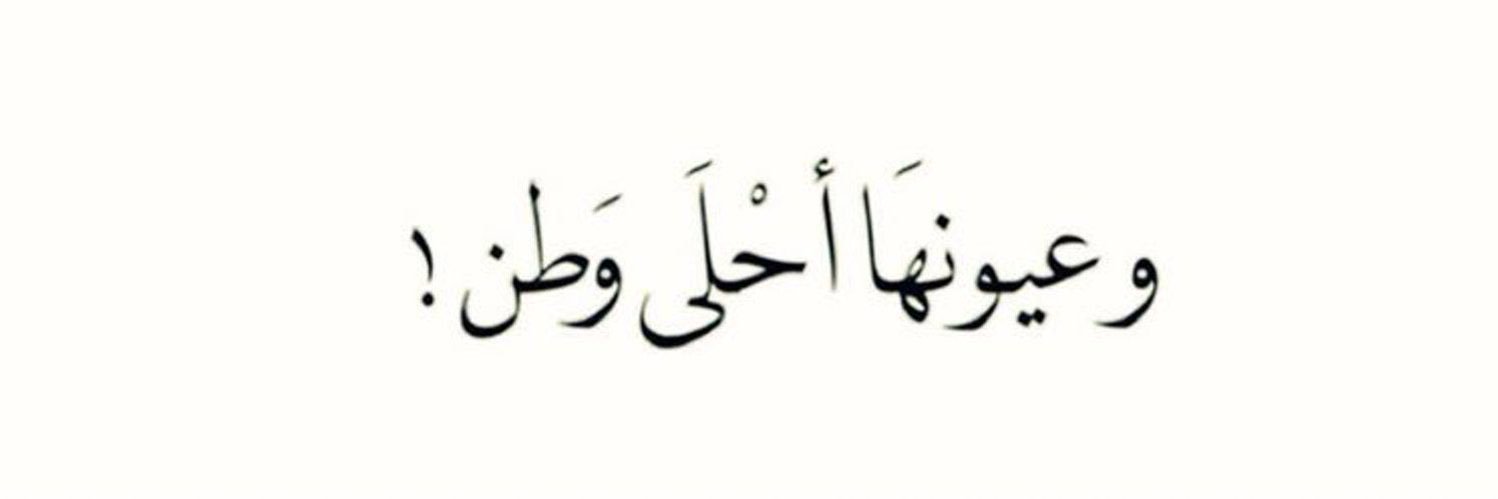 و عيونهَا أحْلَى وَطن !